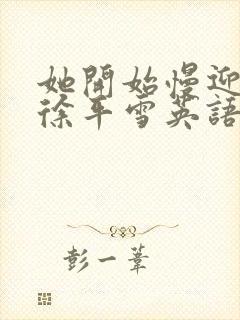 她開始慢迎
徐平雪英語
彭一葦